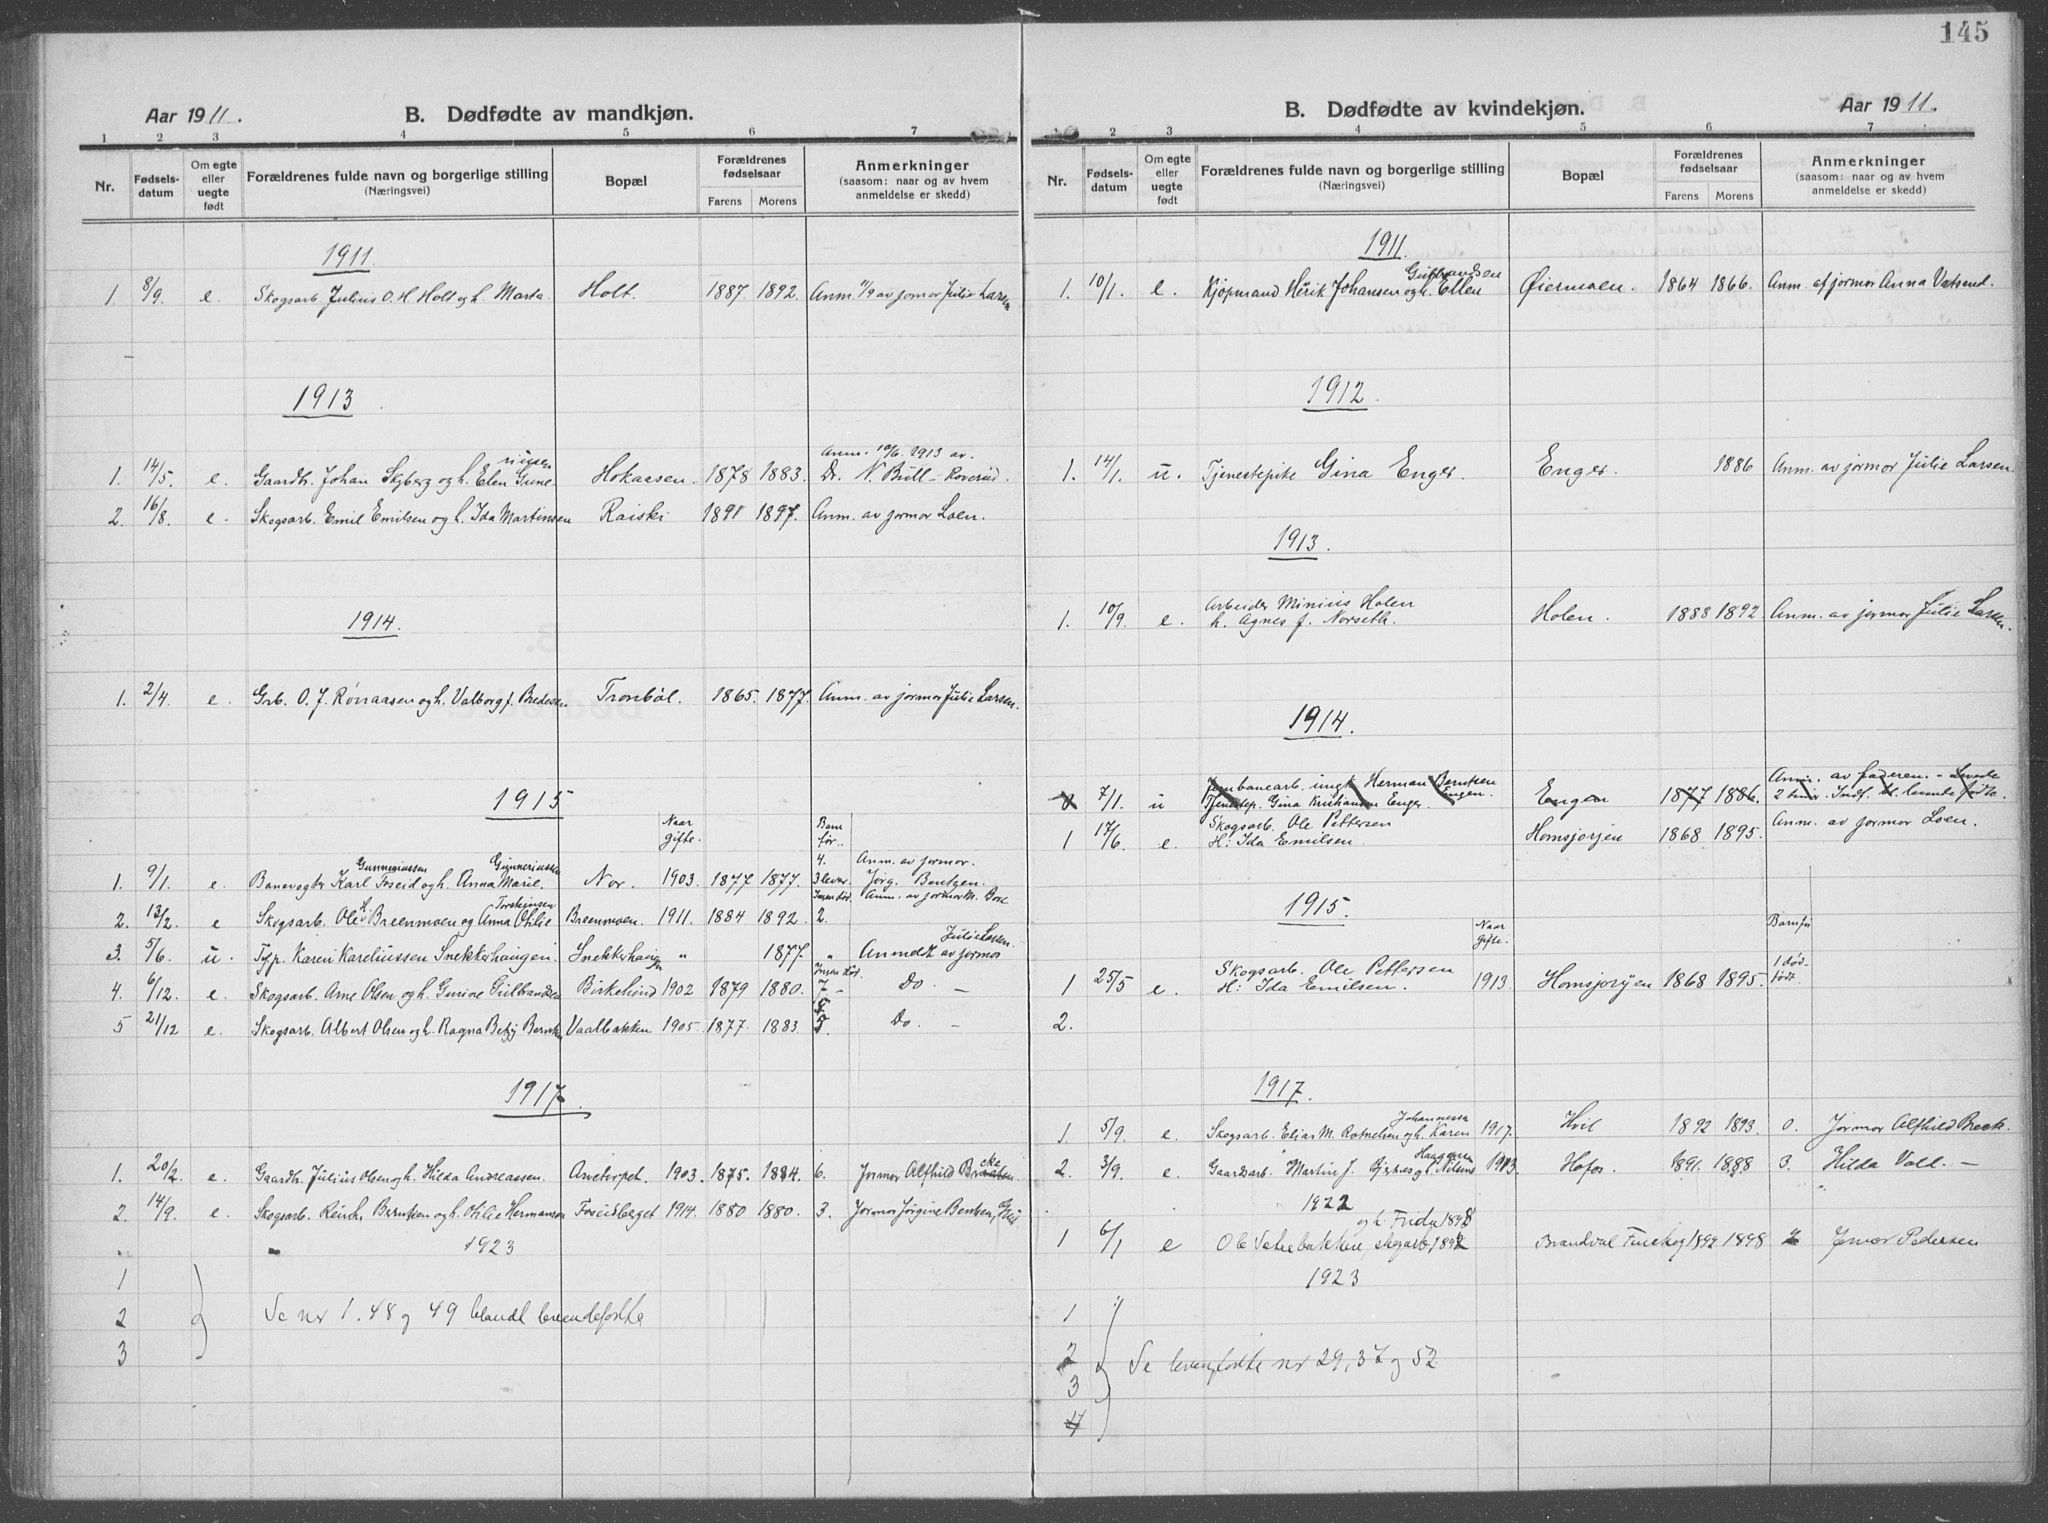 145
Aar 1911.
B. Dødfødte av mandkjøn.
1 2 3 4 5 6 7
Nr.
Fødsels-
datum
Om egte
eller
uegte
født
Forældrenes fulde navn og borgerlige stilling
(Næringsvei)
Bopæl
Forældrenes
fødselsaar
Farens Morens
Anmerkninger
(saasom: naar og av hvem
anmeldelse er skedd)
1911.
1. 8/9. e. Skogsarb. Julius O. H. Holt og h. Marta Holt. 1887 1892. Anm. 11/9 av jormor Julie Larsen
1913
1. 14/5. e. Gaardb. Johan Skyberg og h. Elen Hokaasen. 1878 1883. Anm. 19/6. 1913 av Dr. N. Bull - Roverud.
2. 16/8. e. Skogsarb. Emil Emilsen og h. Ida Martinsen Raiski 1891 1897. Anm. av jormor Loen.
1914.
1. 2/4. e. Grb. O. J. Rønaasen og h. Valborg f. Bredesen Tronbøl. 1865. 1877. Anm. av jormor Julie Larsen.
1915
Naar
gifte.
Barn
før.
1. 9/1. e. Banevogter Karl Gunneriussen Foseid og h. Anna Marie Gunneriussen. Nor. 1903. 1877 1877. 4. 3 lever. Anm. av jormor. Jørg. Bentzen.
2. 13/2. e Skogsarb. Ole H. Breenmoen og Anna Otilie Torsteinsen Breenmoen. 1911. 1884 1892. Ingen død. 2. Anm. av jordmor M.
3. 5/6. u. Tjp. Karen Kareliussen Snekkerhaugen. Snekkerhaugen " 1877. " Anmeldt av jormor Julie Larsen.
4. 6/12. e. Skogsarb. Arne Olsen og h. Gurine Gulbrandsen Birkelund 1902 1879 1880. Ingen død. 7 - Do. -
5 21/12 e. Skogsarb. Albert Olsen og h. Ragna Betzy Berntsen Vaalbakken 1905. 1877. 1883 5. Do. -
1917.
1. 20/2. e. Gaardb. Julius Olsen og h. Hilda Andreassen. Anetorpet. 1903. 1875. 1884. 6. Jormor Alfhild
2. 14/9. e. Skogsarb. Reinh. Berntzen og h. Otilie Hermansen Foseidberget 1914. 1880 1880. 3. Jormor Jørgine Bentzen,
1923
1
2 Se nr 1. 48 og 49 blandt levendefødte
3
B. Dødfødte av kvindekjøn.
Aar 1911.
1 2 3 4 5 6 7
Nr.
Fødsels-
datum
Om egte
eller
uegte
født
Forældrenes fulde navn og borgerlige stilling
(Næringsvei)
Bopæl
Forældrenes
fødselsaar
Farens Morens
Anmerkninger
(saasom: naar og av hvem
anmeldelse er skedd)
1911.
1. 10/1. e. Kjøpmand Henrik Johansen og h. Ellen Gulbrandsen Øiermoen. 1864 1866. Anm. af jormor Anna Vatsend.
1912.
1. 14/1. u. Tjenestepike Gina Enger. Enger. 1886 Anm. av jormor Julie Larsen
1913.
1. 10/9. e. Arbeider Minius Holen
h. Agnes f. Norseth. Holen. 1888 1892. Anm. av jormor Julie Larsen.
1914.
7/1. u Jernbanearb. ungk. Herman Berntsen Engen.
Tjenestep. Gina Kristiansen Enger. Engen 1877 1886. Anm. av faderen. - Levede
2 timer. Indf. bl. levende fødte.
1 17/6. e. Skogsarb. Ole Pettersen
H: Ida Emilsen. Homsjorjen 1868 1895. Anm. av jormor Loen.
1915.
Naar
gifte.
Barn før
1 25/5 e. Skogsarb. Ole Pettersen
H: Ida Emilsen. 1913 Homsjorjen 1868 1895. 1 død-
født.
2.
1917.
1. 5/9. e. Skogsarb. Elias M. Rotnelsen og h. Karen Johannessen 1917. Hvil 1892 1893. 0. Jormor Alfhild Breck.
2. 3/9. e. Gaardsarb. Martin J. og h. Haagensen 1913 Hofos. 1891. 1888 3. Hilda Voll. -
1922
1 6/1 e Ole skogarb, 1892 og h. Frida 1898 Brandval Finskog 1892 1898 Jmor Pedersen
1923
1
2 Se levenfødte nr 29, 37 og 52
3
4